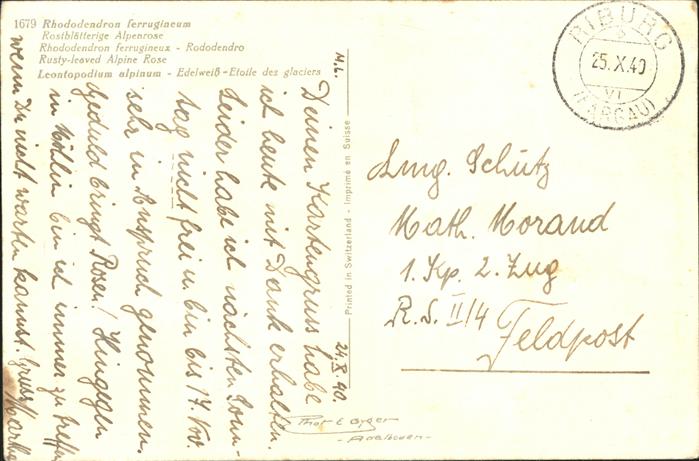 1679 Rhododendron ferrugineum
Rostblätterige Alpenrose
Rhododendron ferrugineux - Rododendro
Rusty-leaved Alpine Rose
Leontopodium alpinum - Edelweiß - Etoile des glaciers
M.L.
24.X.40.
Deinen Kartengruss habe
ich heute mit Dank erhalten.
Leider habe ich nächsten Sonn-
tag nicht frei u. bin bis 17. Nov.
sehr in Anspruch genommen.
Geduld bringt Rosen! Hingegen
in Möhlin bin ich immer zu treffen
wenn Du nicht warten kannst. Gruss
Printed in Switzerland - Imprimé en Suisse
RIBURG
25.X.40
VI
(AARGAU)
Lmg. Schütz
Math. Morand
1. Kp. 2. Zug
R.S. II/4
Feldpost
Phot E Gyger
- Adelboden -